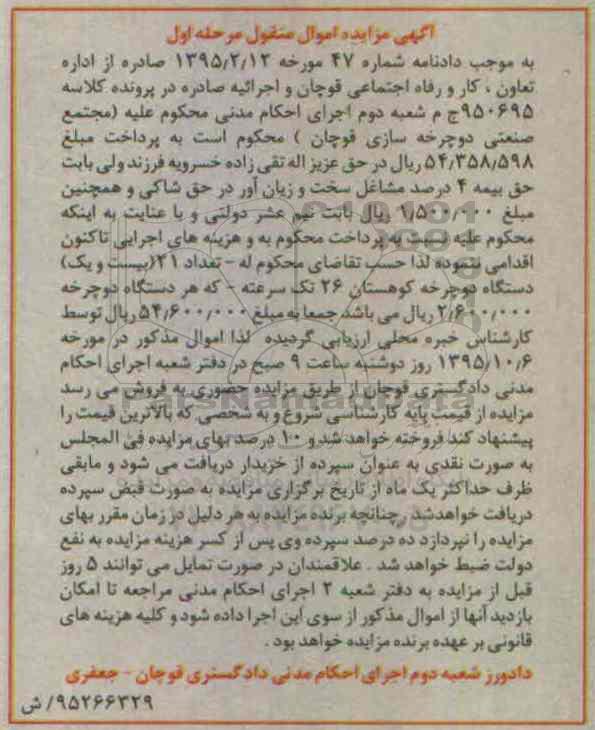 آگهی مزایده اموال منقول مرحله اول
به موجب دادنامه شماره ۴۷ مورخه ۱۳۹۵/۲/۱۲ صادره از اداره
تعاون ، کار و رفاه اجتماعی قوچان و اجرائیه صادره در پرونده کلاسه
۹۵۰۶۹۵ج م شعبه دوم اجرای احکام مدنی محکوم علیه (مجتمع
صنعتی دوچرخه سازی قوچان ) محکوم است به پرداخت مبلغ
۵۴٫۳۵۸٫۵۹۸ ریال در حق عزیز اله تقی زاده خسرویه فرزند ولی بابت
حق بیمه ۴ درصد مشاغل سخت و زیان آور در حق شاکی و همچنین
مبلغ ۱٫۵۰۰٫۰۰۰ ریال بابت نیم عشر دولتی و با عنایت به اینکه
محکوم علیه نسبت به پرداخت محکوم به و هزینه های اجرایی تاکنون
اقدامی ننموده لذا حسب تقاضای محکوم له - تعداد ۲۱(بیست و یک)
دستگاه دوچرخه کوهستان ۲۶ تک سرعته - که هر دستگاه دوچرخه
۲٫۶۰۰٫۰۰۰ ریال می باشد جمعا به مبلغ ۵۴٫۶۰۰٫۰۰۰ ریال توسط
کارشناس خبره محلی ارزیابی گردیده لذا اموال مذکور در مورخه
۱۳۹۵/۱۰/۶ روز دوشنبه ساعت ۹ صبح در دفتر شعبه اجرای احکام
مدنی دادگستری قوچان از طریق مزایده حضوری به فروش می رسد
مزایده از قیمت پایه کارشناسی شروع و به شخصی که بالاترین قیمت را
پیشنهاد کند فروخته خواهد شد و ۱۰ درصد بهای مزایده فی المجلس
به صورت نقدی به عنوان سپرده از خریدار دریافت می شود و مابقی
ظرف حداکثر یک ماه از تاریخ برگزاری مزایده به صورت قبض سپرده
دریافت خواهدشد . چنانچه برنده مزایده به هر دلیل در زمان مقرر بهای
مزایده را نپردازد ده درصد سپرده وی پس از کسر هزینه مزایده به نفع
دولت ضبط خواهد شد . علاقمندان در صورت تمایل می توانند ۵ روز
قبل از مزایده به دفتر شعبه ۲ اجرای احکام مدنی مراجعه تا امکان
بازدید آنها از اموال مذکور از سوی این اجرا داده شود و کلیه هزینه های
قانونی بر عهده برنده مزایده خواهد بود .
دادورز شعبه دوم اجرای احکام مدنی دادگستری قوچان - جعفری
۹۵۲۶۶۳۲۹/ ش